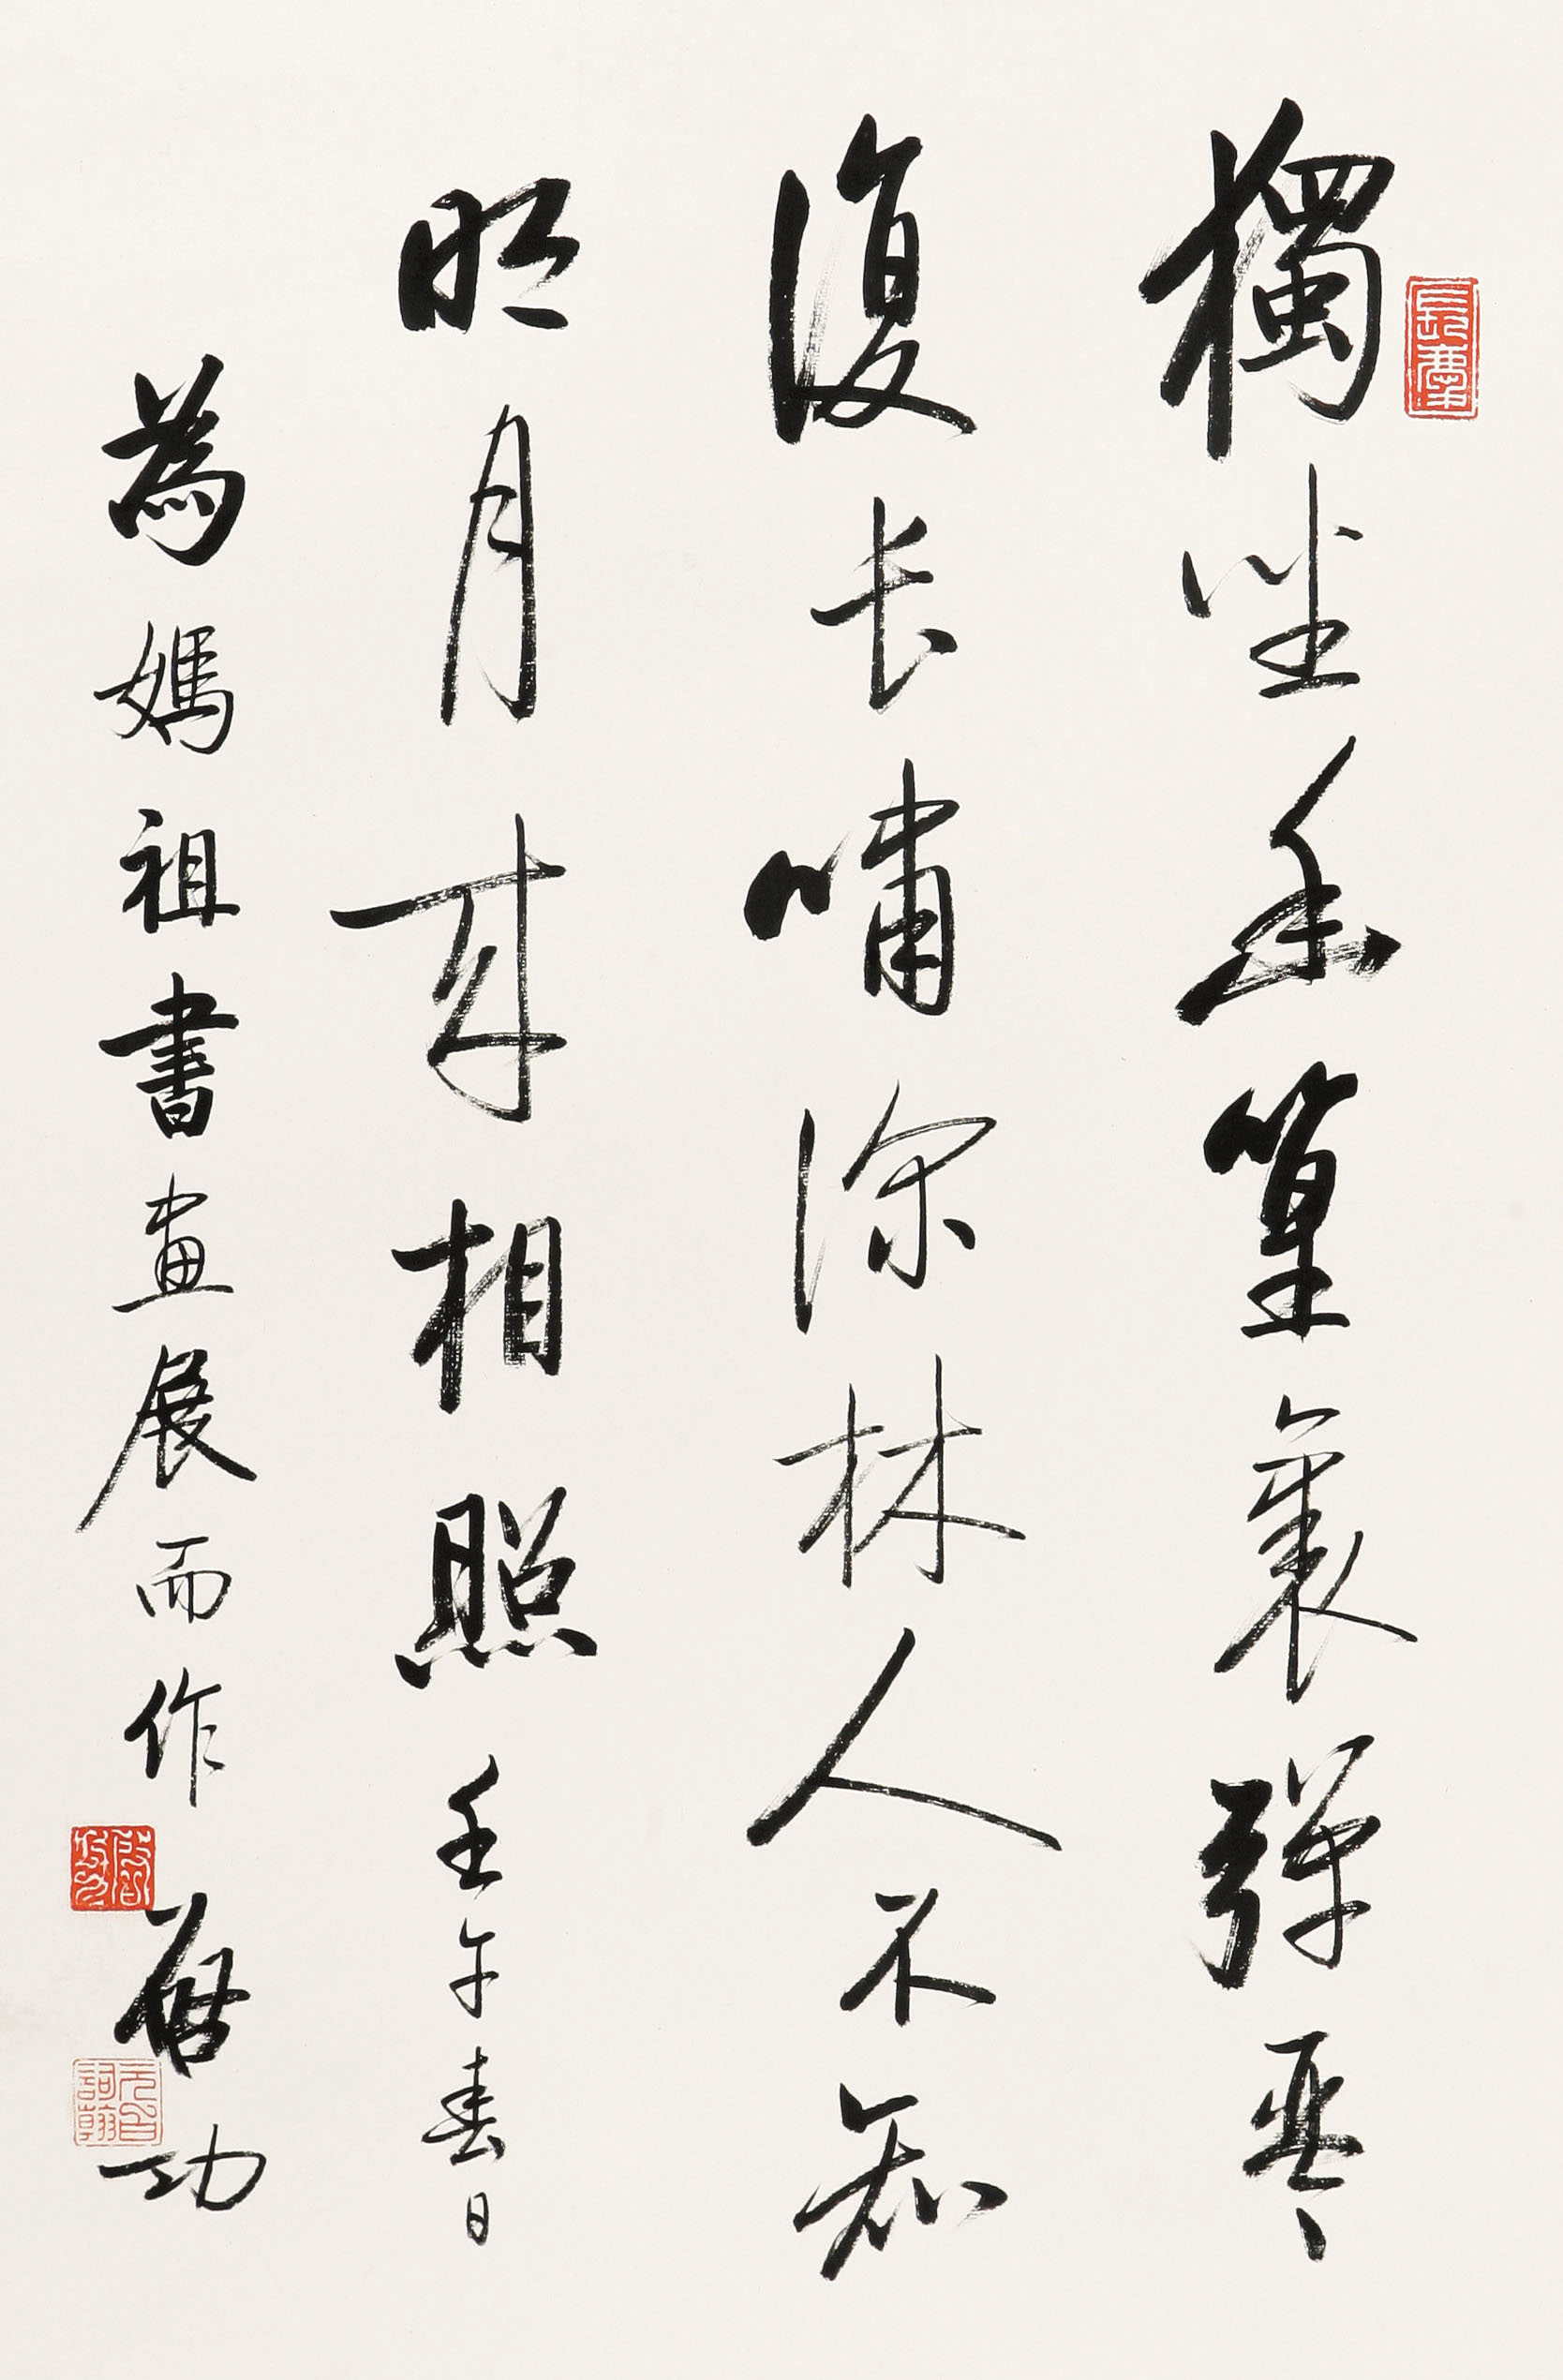 獨坐幽篁裏彈琴
復长嘯深林人不知
明月来相照 壬午春日
為媽祖書畫展而作 啟功
啟功
元白詞翰